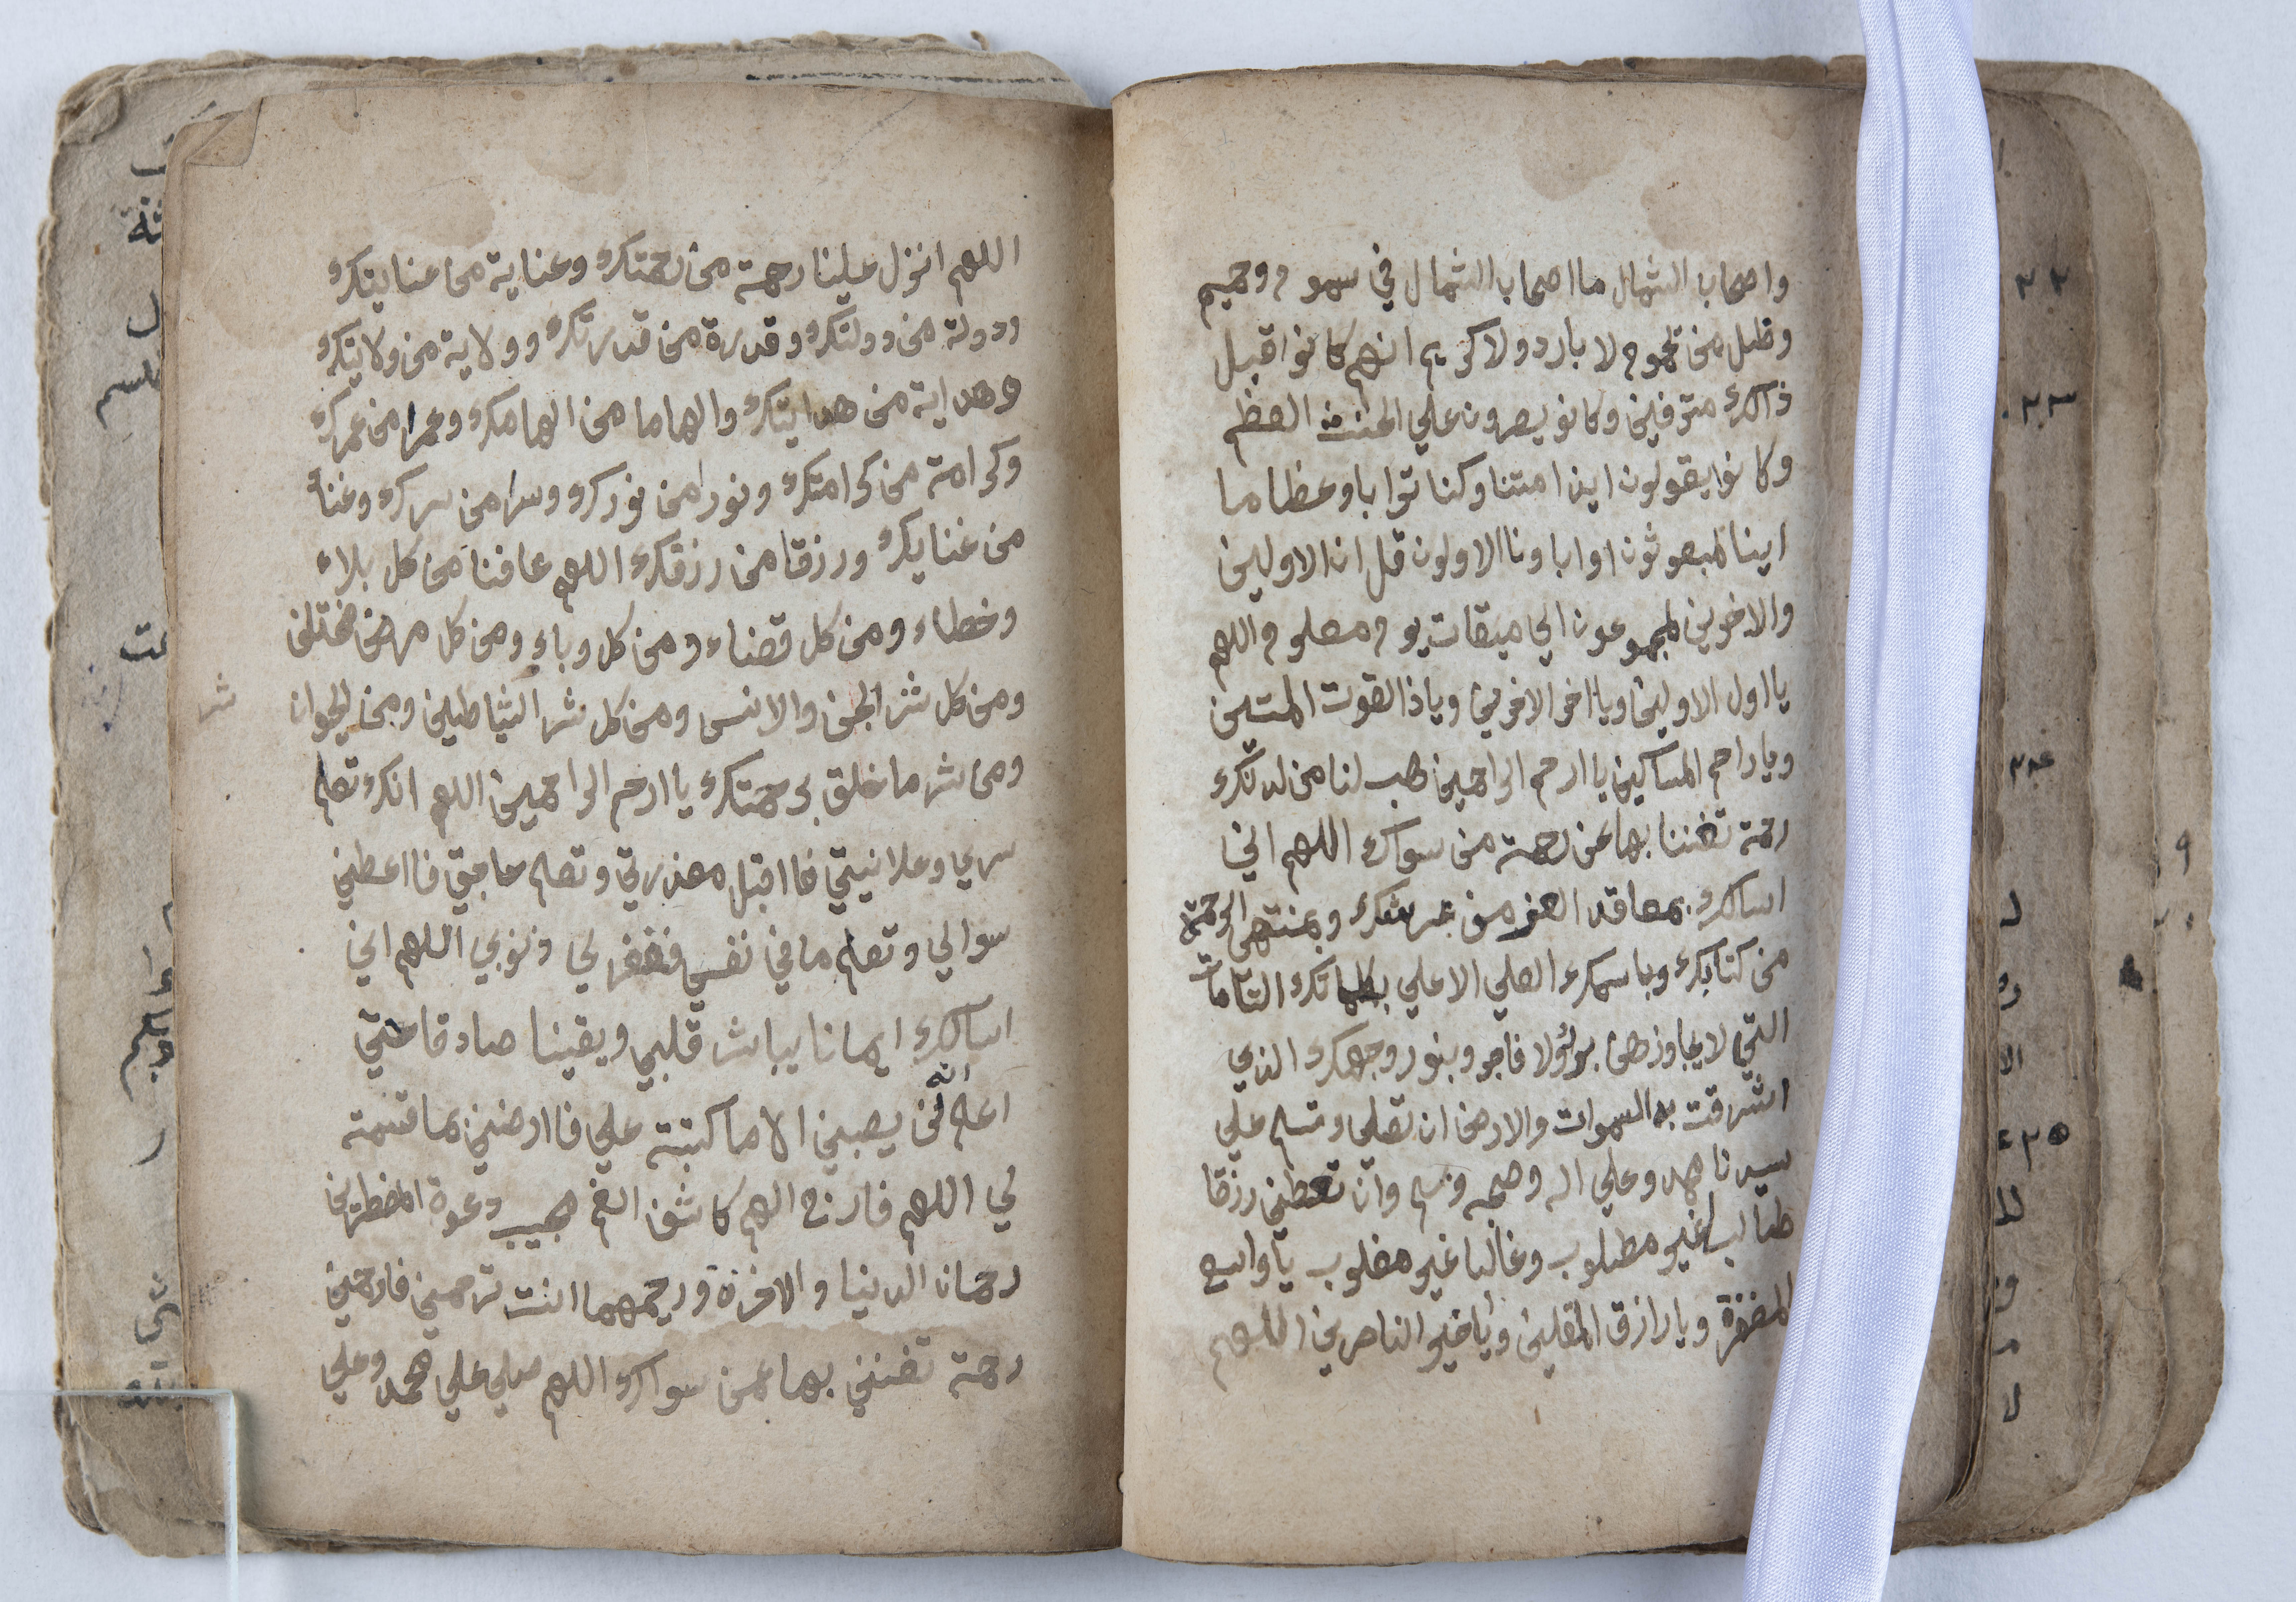 واصحاب الشمال ما اصحاب الشمال في سموم وحميم
وظل من يحموم لا بارد ولا كريم انهم كانوا قبل
ذالك مترفين وكانو يصرون علي الحنث العظم
وكانوا يقولون ايذا متنا وكنا ترابا وعظاما
اينا لمبعوثون اوا باونا الاولون قل ان الاولين
والاخرين لمجموعون الي ميقات يوم معلوم اللهم
يا اول الاولين ويا اخر الاخرين ويا ذا القوت المتين
ويا راحم المساكين يا ارحم الراحمين هب لنا من لدنك
رحمة تغننا بها عن رحمة من سواك اللهم اني
اسالك بمعاقد العز من عرشك وبمنتهى الرحمة
من كتابك وباسمك العلي الاعلي بكلماتك التامات
التي لا يجاوزهن بر ولا فاجر وبنور وجهك الذي
اشرقت به السموات والارض ان تصلي وتسلم علي
سيدنا محمد وعلي اله وصحبه وسلم وان تعطني رزقا
طالبا غير مطلوب وغالبا غير مغلوب يا واسع
المغفرة ويا رازق المقلين ويا خير الناصرين اللهم
اللهم انزل علينا رحمة من رحمتك وعناية من عنايتك
ودولة من دولتك وقدرة من قدرتك وولاية من ولايتك
وهداية من هدايتك والهاما من الهامك وعمرا من عمرك
وكرامة من كرامتك ونورا من نورك وسرا من سرك وغناً
من غنايك ورزقا من رزقك اللهم عافنا من كل بلاء
وخطاء ومن كل قضاء ومن كل وباء ومن كل مرض مختلف
ومن كل شر الجن والانس ومن كل شر الشياطين ومن الحيوان
شر
ومن شر ما خلق برحمتك يا ارحم الراحمين اللهم انك تعلم
سري وعلانيتي فااقبل معذرتي وتعلم حاجتي فااعطني
سوالي وتعلم ما في نفسي فغفر لي ذنوبي اللهم اني
اسالك ايمانا يباشر قلبي ويقينا صادقا حتي
اعلم انه لن يصبني الا ما كتبة علي فاارضني بما قسمته
لي اللهم فارج الهم كاشف الغم مجيب دعوة المضطرين
رحمان الدنيا والاخرة ورحيمهما انت ترحمني فارحمني
رحمة تغنني بها عمن سواك اللهم صلي علي محمد وعلي